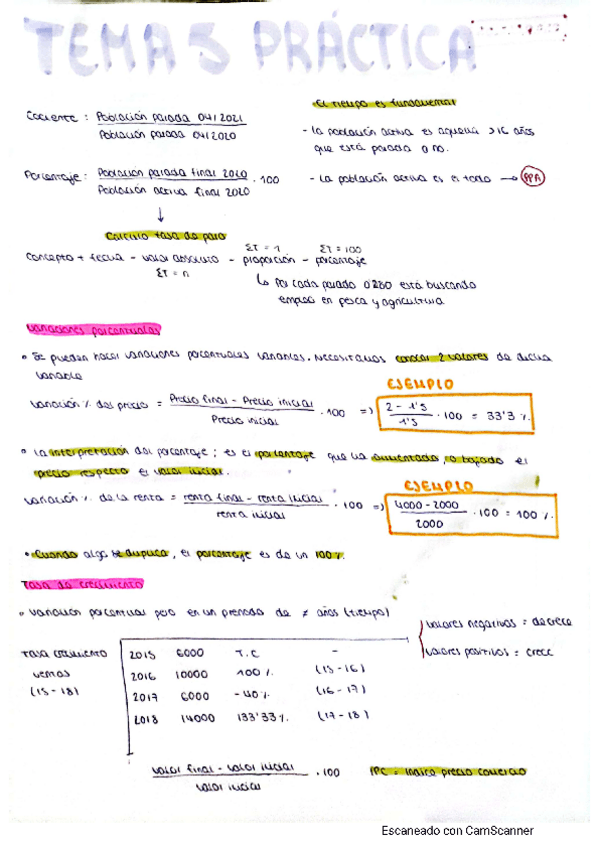 TEMA 5 PRÁCTICA
El tiempo es fundamental
Cociente : Población parada 04/2021
Población parada 04/2020
- La población activa es aquella >16 años
que está parada o no.
Porcentaje : Población parada final 2020 · 100
Población activa final 2020
- La población activa es el todo → PPA
↓
Calculo tasa de paro
ΣT = 1 ΣT = 100
Concepto + fecha - valor absoluto - proporción - porcentaje
ΣT = n
↳ Por cada parado 0'280 está buscando
empleo en pesca y agricultura
Variaciones porcentuales
• Se pueden hacer variaciones porcentuales variables. Necesitamos conocer 2 valores de dicha
variable
EJEMPLO
Variación % del precio = Precio final - Precio inicial · 100 =) 2 - 1'5 · 100 = 33'3 %
Precio inicial 1'5
• La interpretación del porcentaje ; es el porcentaje que ha aumentado, o bajado el
precio respecto el valor inicial.
EJEMPLO
Variación % de la renta = renta final - renta inicial · 100 =) 4000 - 2000 · 100 = 100 %
renta inicial 2000
• Cuando algo se duplica, el porcentaje es de un 100%.
Tasa de crecimiento
• Variación porcentual pero en un periodo de ≠ años (tiempo)
valores negativos = decrece
valores positivos = crece
Tasa crecimiento
ventas
(15 - 18)
2015 6000 T.C -
2016 10000 100% (15 - 16)
2017 6000 -40% (16 - 17)
2018 14000 133'33% (17 - 18)
valor final - valor inicial · 100
valor inicial
IPC = Indice precio comercio
Escaneado con CamScanner